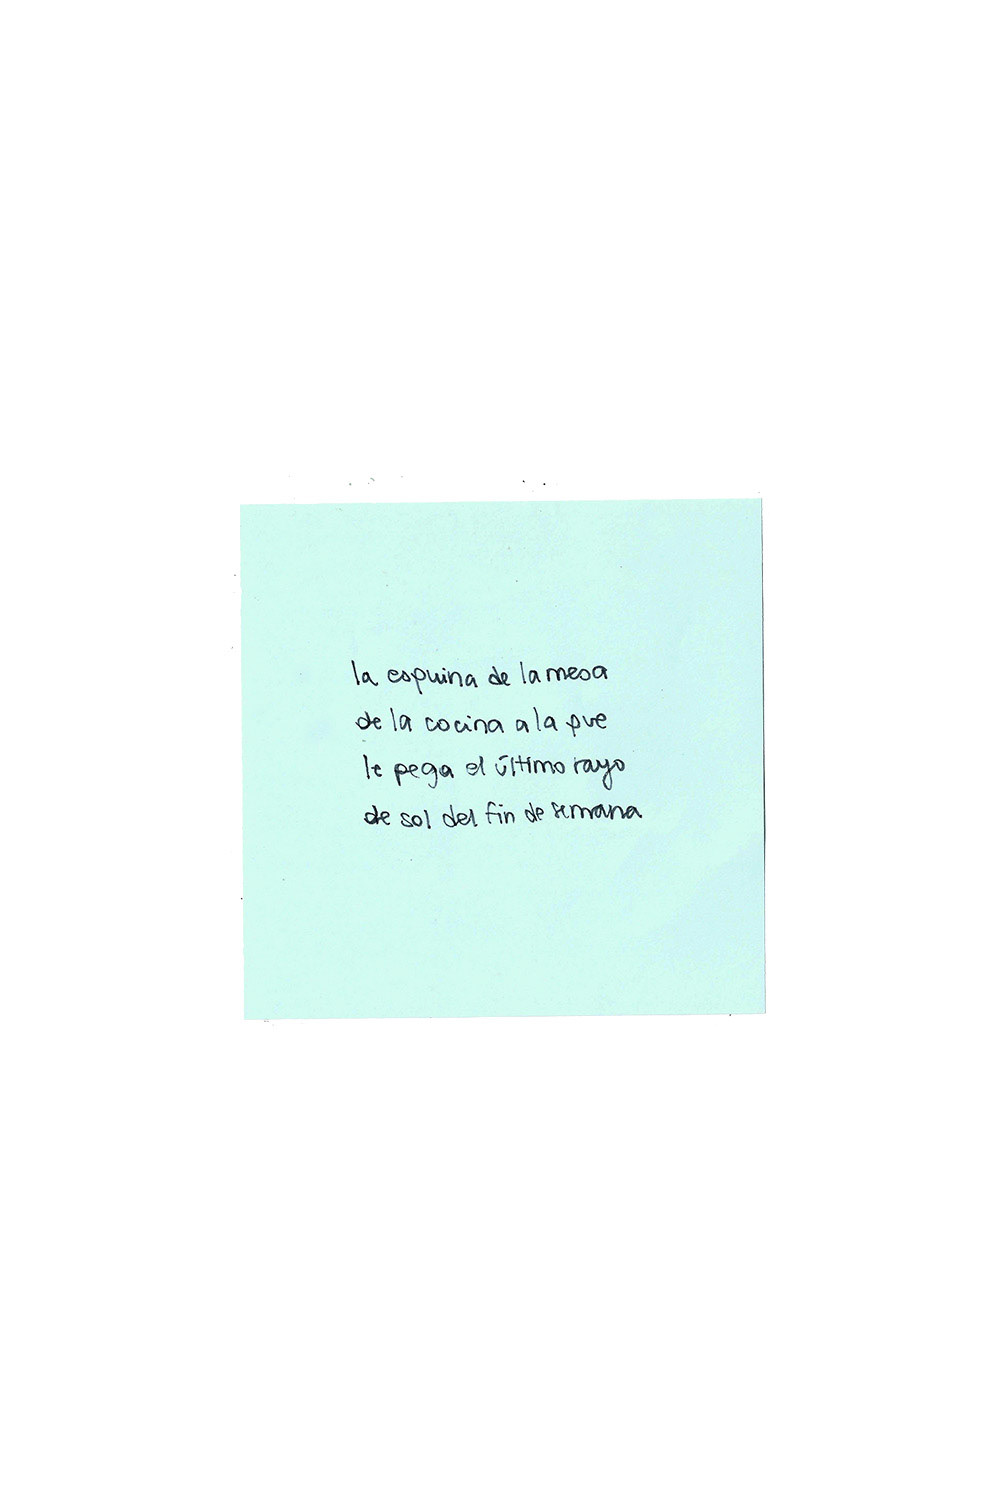 la esquina de la mesa
de la cocina a la que
le pega el último rayo
de sol del fin de semana